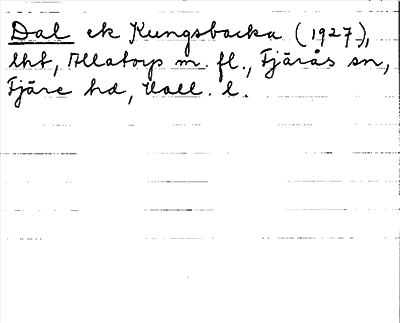 Dal ek Kungsbacka (1927-),
lht, Allatorp m. fl., Fjärås sn,
Fjäre hd, Hall. l.